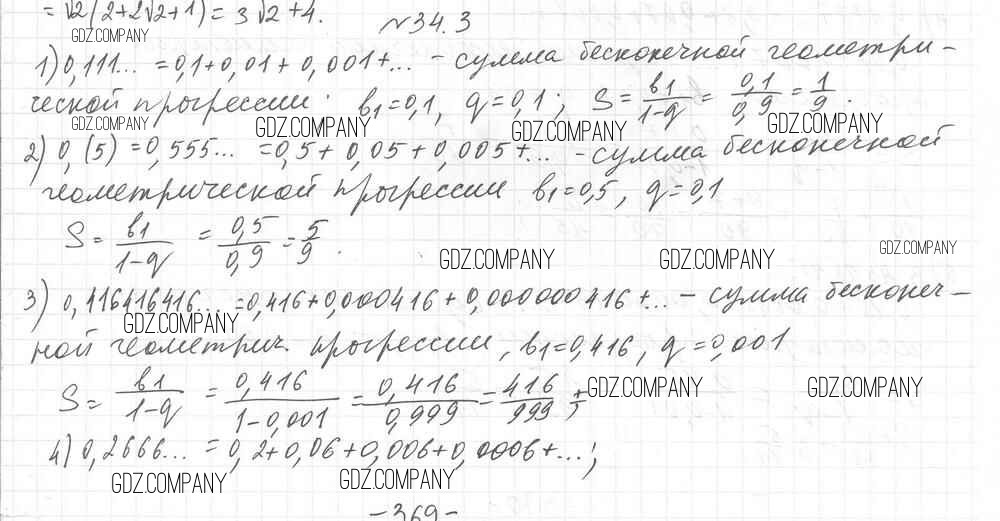 = √2(2+2√2+1) = 3√2+4.
№34.3
GDZ.COMPANY
1) 0,111... = 0,1+0,01+0,001+... – сумма бесконечной геометри-
ческой прогрессии: b1=0,1, q=0,1; S = b1/1-q = 0,1/0,9 = 1/9.
GDZ.COMPANY GDZ.COMPANY GDZ.COMPANY GDZ.COMPANY
2) 0,(5) = 0,555... = 0,5+0,05+0,005+... – сумма бесконечной
геометрической прогрессии b1=0,5, q=0,1
S = b1/1-q = 0,5/0,9 = 5/9.
GDZ.COMPANY GDZ.COMPANY GDZ.COMPANY
3) 0,416416416... = 0,416+0,000416+0,000000416+... – сумма бесконеч-
GDZ.COMPANY
ной геометрич. прогрессии, b1=0,416, q=0,001
S = b1/1-q = 0,416/1-0,001 = 0,416/0,999 = 416/999
GDZ.COMPANY GDZ.COMPANY
4) 0,2666... = 0,2+0,06+0,006+0,0006+...;
GDZ.COMPANY GDZ.COMPANY
–369–